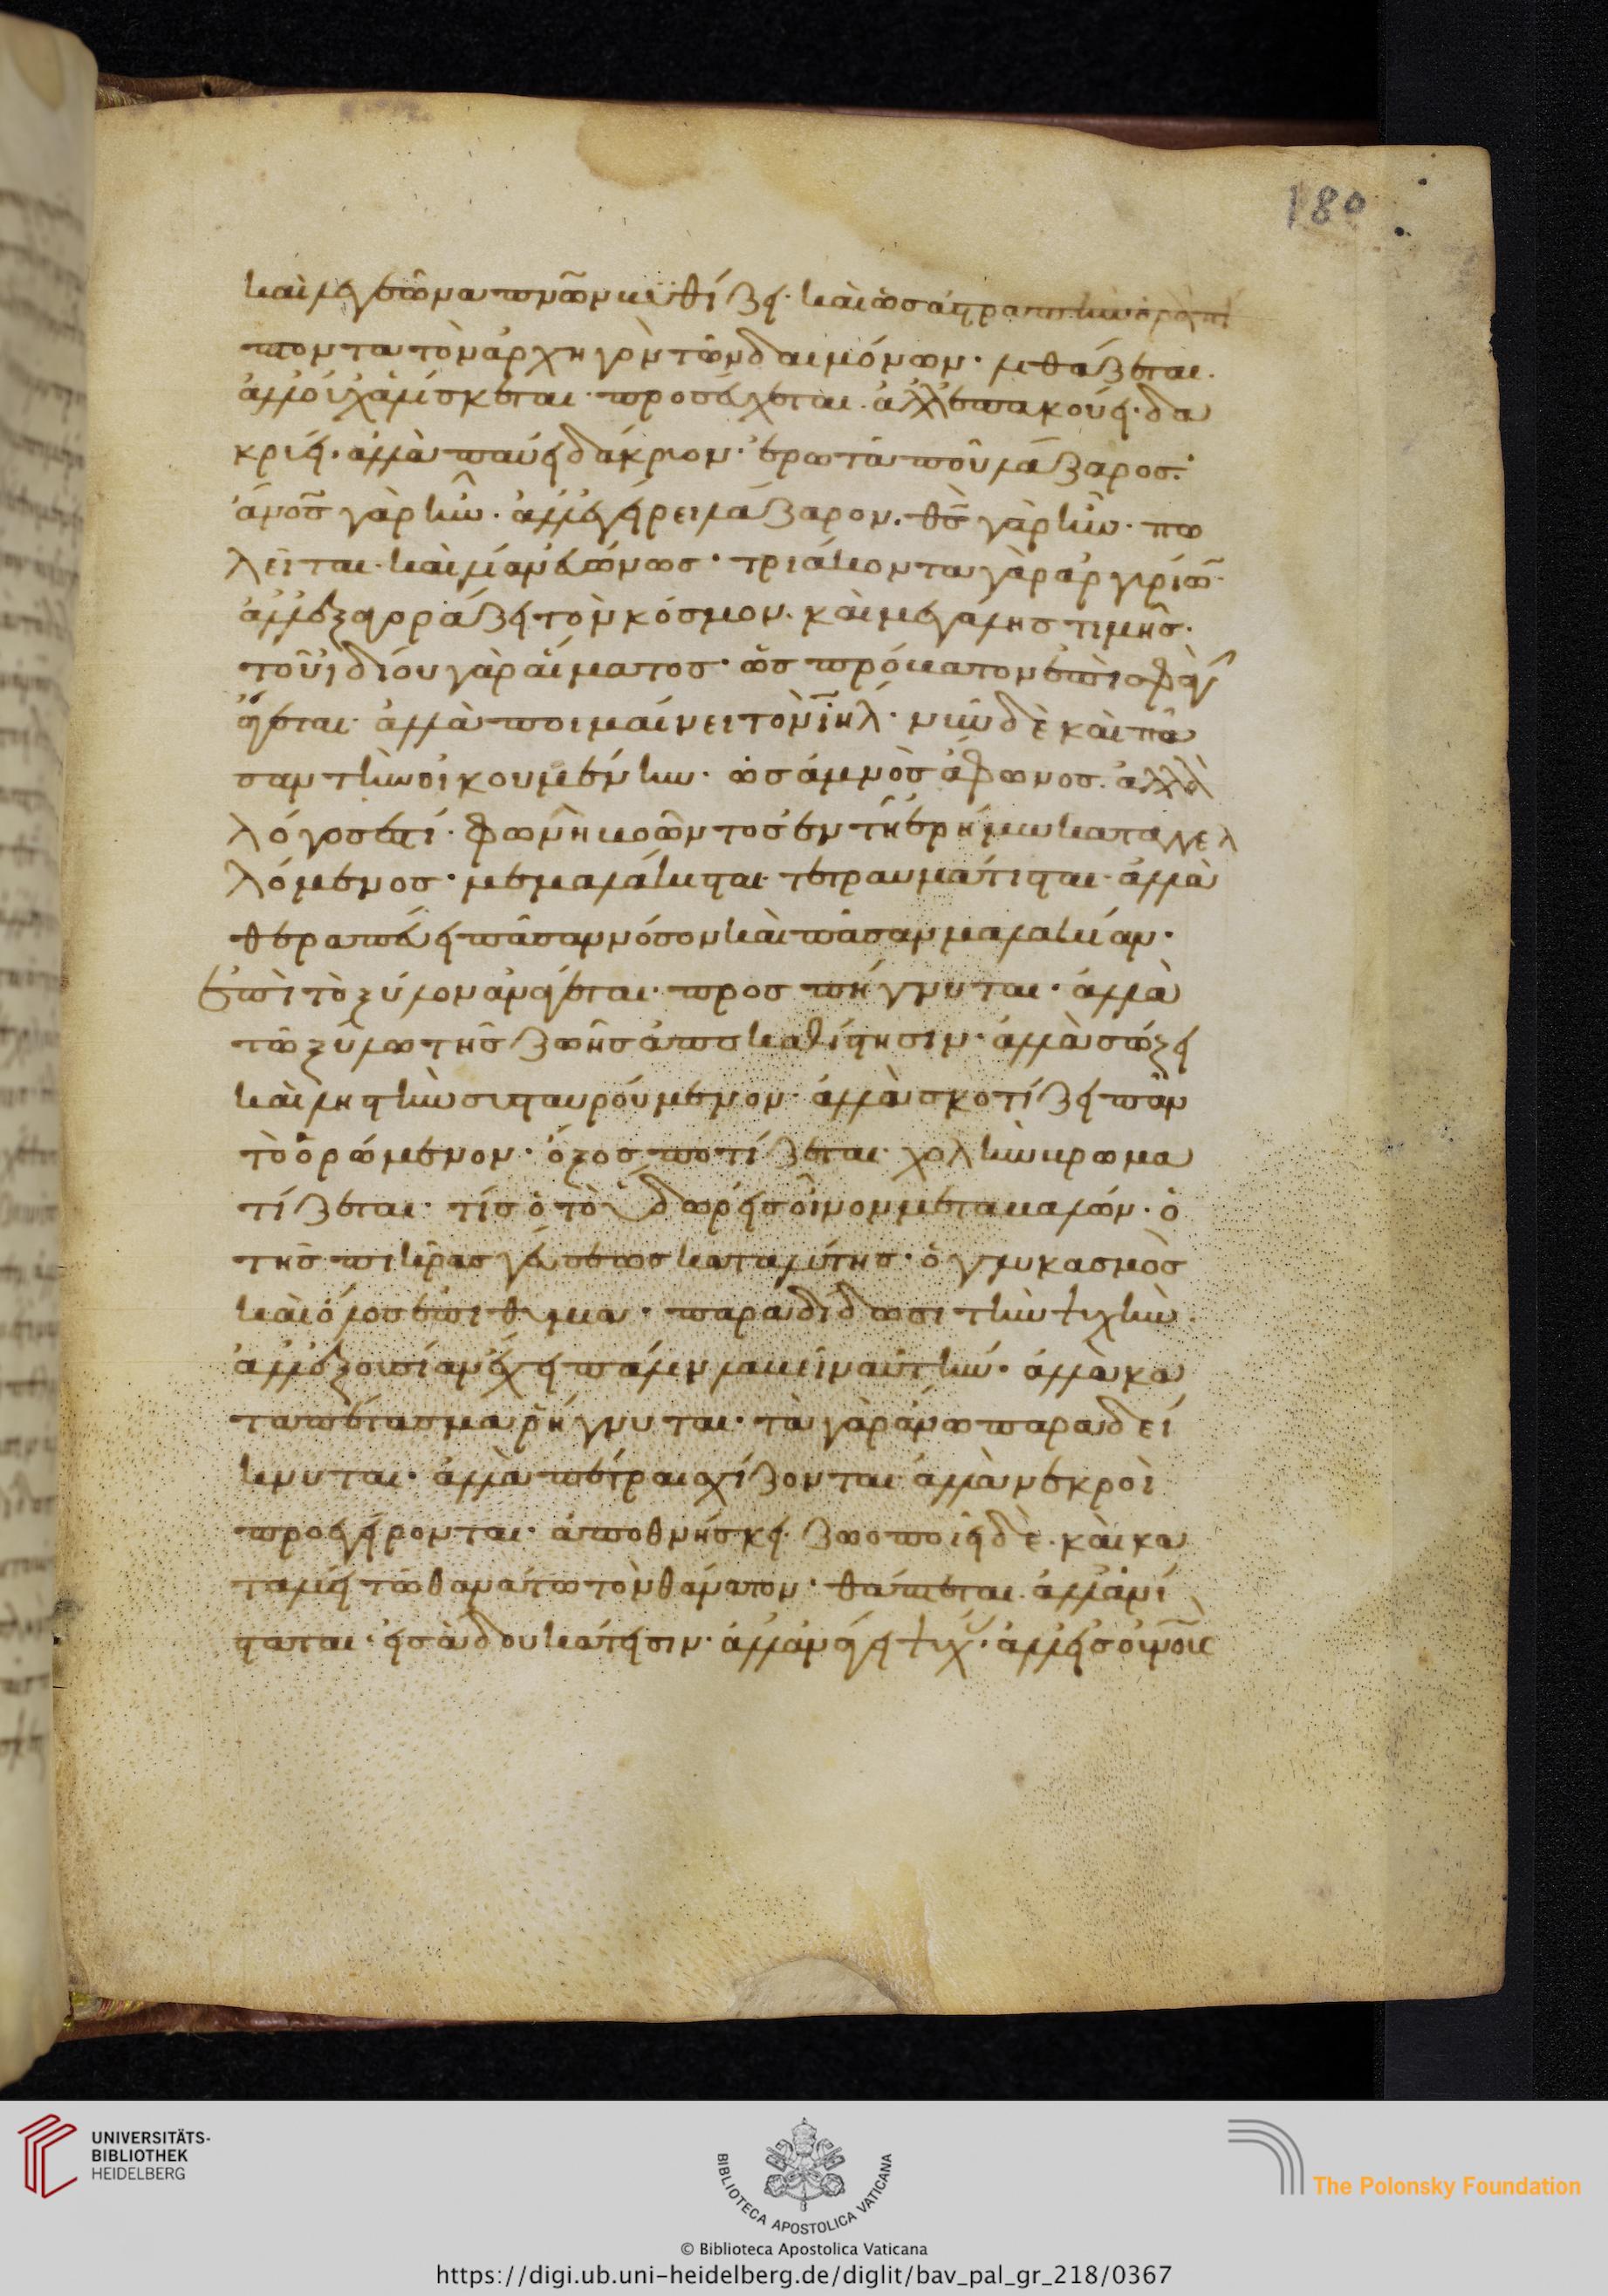 180
καὶ λεγεῶνα πνῶν βυθίζει· καὶ ὡς ἀστραπὴν ὁρᾶ πί
πτοντα τὸν ἀρχηγὸν τῶν δαιμόνων· λιθάζεται·
ἀλλ' οὐχ ἁλίσκεται· προσεύχεται· ἀλλ' ἐπακούει· δα
κρύει· ἀλλὰ παύει δάκρυον· ἐρωτᾶ ποῦ λάζαρος·
ἄνος γὰρ ἦν· ἀλλ' ἐγείρει λάζαρον· θς γὰρ ἦν· πω
λεῖται· καὶ λίαν εὐώνως· τριάκοντα γὰρ ἀργυρίων·
ἀλλ' ἐξαγοράζει τὸν κόσμον· καὶ μεγάλης τιμῆς·
τοῦ ἰδίου γὰρ αἵματος· ὡς πρόβατον ἐπὶ σφαγὴν
ἄγεται· ἀλλὰ ποιμαίνει τὸν ιηλ· νῦν δὲ καὶ πᾶ
σαν τὴν οἰκουμένην· ὡς ἀμνὸς ἄφωνος· ἀλλὰ
λόγος ἐστί· φωνῆ βοῶντος ἐν τῆ ἐρήμω καταγγελ
λόμενος· μεμαλάκισται· τετραυμάτισται· ἀλλὰ
θεραπεύει πᾶσαν νόσον καὶ πᾶσαν μαλακίαν·
ἐπὶ τὸ ξύλον ἀνάγεται· προσπήγνυται· ἀλλὰ
τῶ ξύλω τῆς ζωῆς ἀποκαθίστησιν· ἀλλὰ σώζει
καὶ ληστὴν συσταυρούμενον· ἀλλὰ σκοτίζει πᾶν
τὸ ὁρώμενον· ὄξος ποτίζεται· χολὴν βρωμα
τίζεται· τίς ὁ τὸ ὕδωρ εἰς οἶνον μεταβαλών· ὁ
τῆς πικρᾶς γεύσεως καταλύτης· ὁ γλυκασμὸς
καὶ ὅλος ἐπιθυμία· παραδίδωσι τὴν ψυχὴν·
ἀλλ' ἐξουσίαν ἔχει πάλιν λαβεῖν αὐτήν· ἀλλὰ κα
ταπέτασμα ῥήγνυται· τὰ γὰρ ἄνω παραδεί
κνυται· ἀλλὰ πέτραι σχίζονται· ἀλλὰ νεκροὶ
προεγείρονται· ἀποθνήσκει· ζωοποιεῖ δὲ· καὶ κα
ταλύει τῶ θανάτω τὸν θάνατον· θάπτεται· ἀλλ' ἀνί
σταται· εἰς ἅδου κάτεισιν· ἀλλ' ἀνάγει ψυχάς· ἀλλ' εἰς οὐνοὺς
UNIVERSITÄTS-
BIBLIOTHEK
HEIDELBERG
BIBLIOTECA APOSTOLICA VATICANA
The Polonsky Foundation
© Biblioteca Apostolica Vaticana
https://digi.ub.uni-heidelberg.de/diglit/bav_pal_gr_218/0367